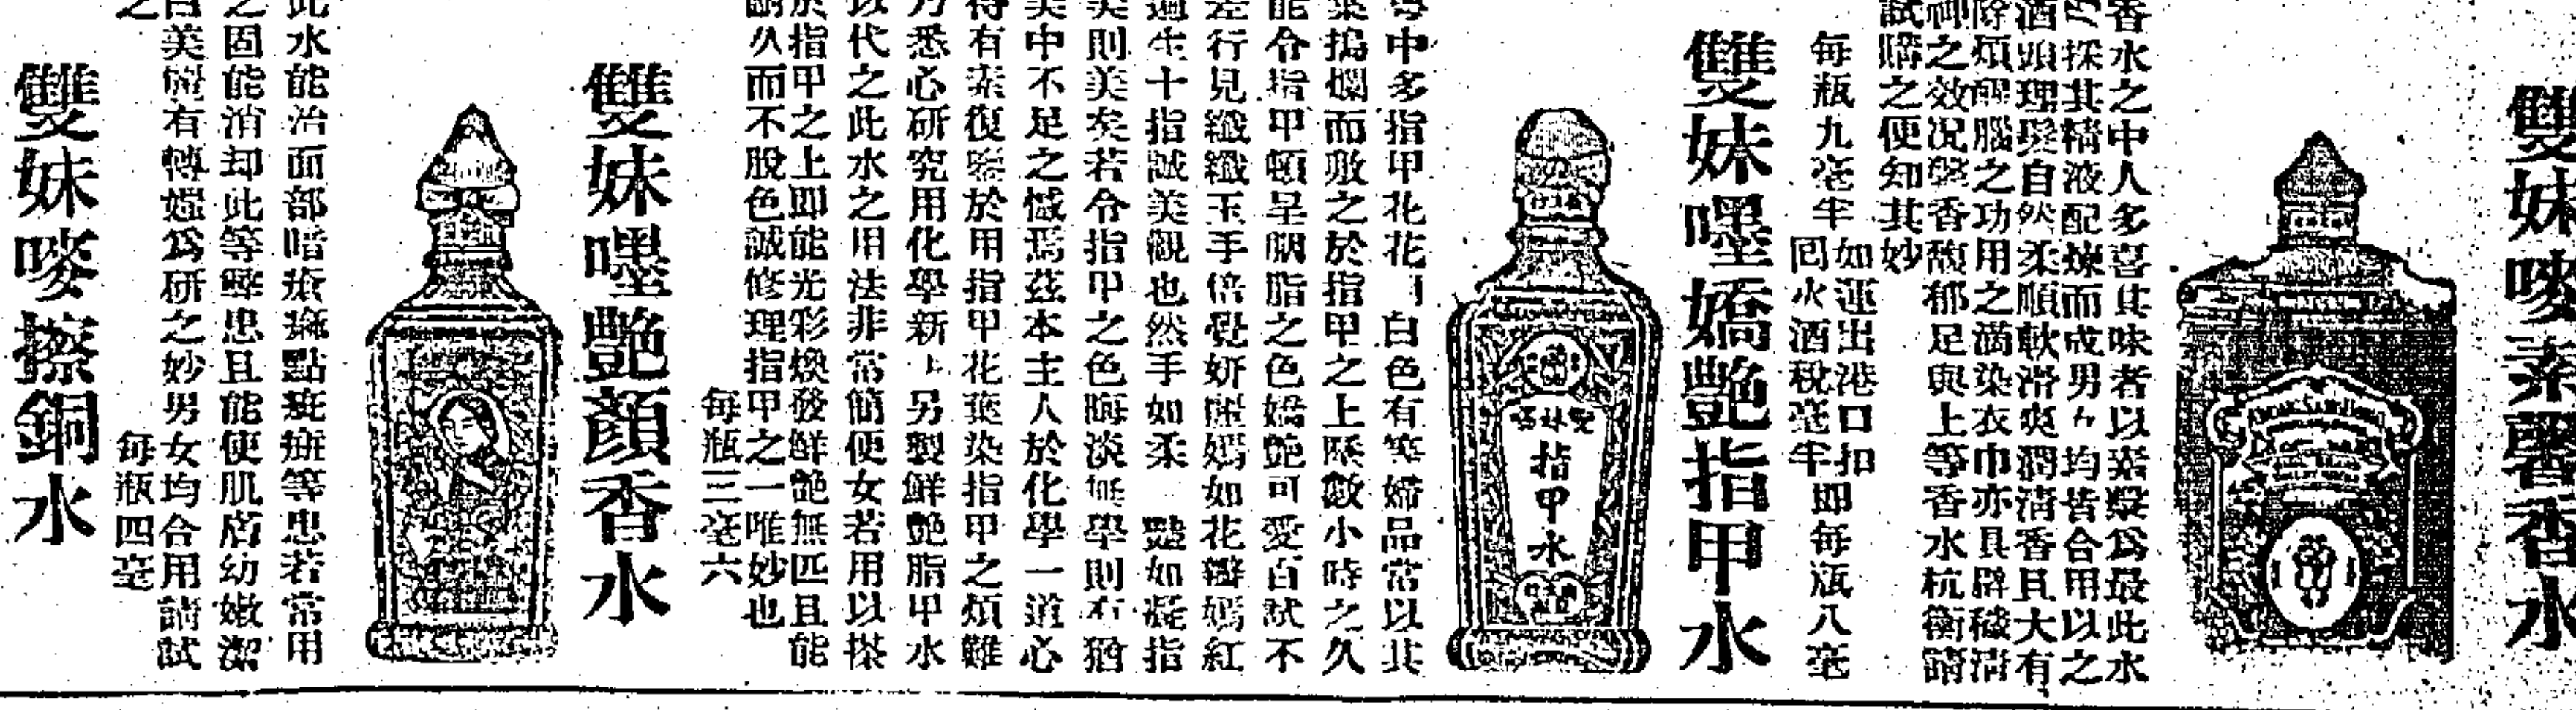 雙妹嘜素馨香水
香水之中人多喜其味者以素馨為最此水
採其精液配煉而成男女均皆合用以之
酒頭理髮自然柔順軟滑爽潤清香且大有
除煩醒腦之功用之滴染衣巾亦具辟穢清
神之效況馨香馥郁足與上等香水杭衡請
試購之便知其妙
每瓶九毫半
如運出港口扣
囘火酒稅毫半即每瓶八毫
雙妹嘜嬌艷指甲水
雙妹嘜
指甲水
粵中多指甲花花 白色有等婦品常以其
葉搗爛而敷之於指甲之上歷數小時之久
能令指甲頓呈胭脂之色嬌艷可愛自試不
差行見纖纖玉手倍覺妍麗嫣如花瓣嫣紅
過生十指誠美觀也然手如柔 艷如凝指
美則美矣若令指甲之色晦淡無華則有猶
美中不足之憾焉茲本主人於化學一道心
得有素復鑒於用指甲花葉染指甲之煩難
乃悉心研究用化學新 另製鮮艷脂甲水
以代之此水之用法非常簡便女若用以搽
於指甲之上即能光彩煥發鮮艷無匹且能
耐久而不脫色誠修理指甲之一唯妙也
每瓶三毫六
雙妹嘜艷顏香水
此水能治面部暗瘡 點痣斑等患若常用
之固能消却此等弊患且能使肌膚幼嫩潔
白美麗有轉媸為研之妙男女均合用請試
之
每瓶四毫
雙妹嘜擦銅水